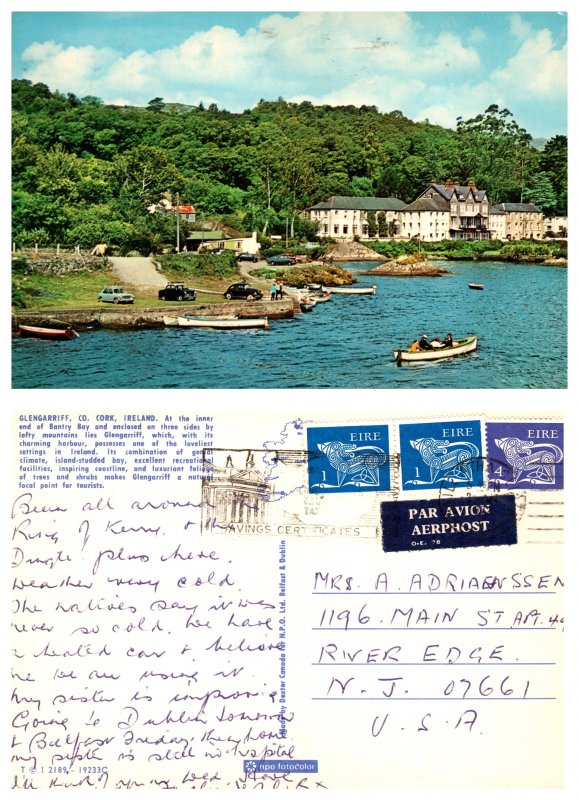 GLENGARRIFF, CO. CORK, IRELAND. At the inner
end of Bantry Bay and enclosed on three sides by
lofty mountains lies Glengarriff, which, with its
charming harbour, possesses one of the loveliest
settings in Ireland. Its combination of genial
climate, island-studded bay, excellent recreational
facilities, inspiring coastline, and luxuriant foliage
of trees and shrubs makes Glengarriff a natural
focal point for tourists.
Been all around
Ring of Kerry, &
Dingle plus here.
Weather very cold.
The natives say it was
never so cold. We have
a heated car & believe
me we are using it.
My sister is improving
Going to Dublin tomorrow
& Belfast Friday, then home
my sister is still in hospital
T © I 2189 - 19233C
Made by Dexter Canada for N.P.O. Ltd. Belfast & Dublin
npo fotocolor
SAVINGS CERTIFICATES
EIRE
1
EIRE
1
EIRE
4
PAR AVION
AERPHOST
O.E. 78
MRS. A. ADRIAENSSEN
1196. MAIN ST APT.
RIVER EDGE.
N.J. 07661
U.S.A.